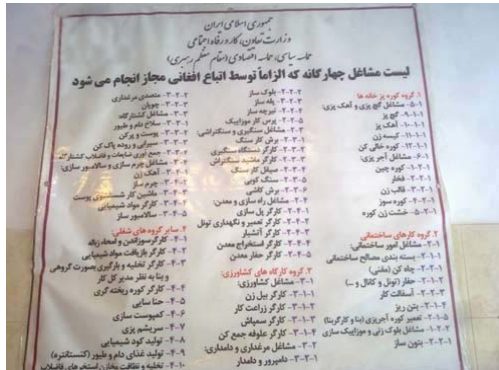 جمهوری اسلامی ایران
وزارت تعاون، کار و رفاه اجتماعی
حماسه سیاسی، حماسه اقتصادی (مقام معظم رهبری)
لیست مشاغل چهارگانه که الزاماً توسط اتباع افغانی مجاز انجام می شود
۱. گروه کوره پز خانه ها
۱-۵- مشاغل گچ پزی و آهک پزی:
گچ پز
آهک پز
کیسه زن
کوره خالی کن
۱-۶- مشاغل آجر پزی:
کوره چین
فخار
قالب زن
کوره سوز
خشت زن کوره
۲. گروه کارهای ساختمانی
مشاغل امور ساختمانی:
بسته بندی مصالح ساختمانی
چاه کن (مقنی)
حفار (تونل و کانال و ...)
آسفالت کار
بتن ریز
تعمیر کوره آجرپزی (بنا و کارگربنا)
مشاغل بلوک زنی و موزاییک سازی
بتون ساز
بلوک ساز
پله ساز
تیرچه ساز
پرس کار موزاییک
مشاغل سنگبری و سنگتراشی:
برش کار سنگ
کارگر دستگاه سنگبری
کارگر ماشینه سنگتراش
صیقل کار سنگ
سنگ کوبی
برش کاشی
مشاغل راه سازی و معدن:
کارگر پل سازی
کارگر تعمیر و نگهداری تونل
کارگر آتشبار
کارگر استخراج معدن
کارگر حفار معدن
۳. گروه کارگاه های کشاورزی:
۳-۱- مشاغل کشاورزی:
۳-۱-۱- کارگر بیل زن
۳-۱-۲- کارگر زراعت کار
۳-۱-۳- کارگر سمپاش
۳-۱-۴- کارگر علوفه جمع کن
۳-۲- مشاغل مرغداری و دامداری:
۳-۲-۱- دامپرور و دامدار
۳-۲-۲- متصدی مرغداری
۳-۲-۳- چوپان
۳-۳- مشاغل کشتارگاه:
سلاخ دام و طیور
پوست و پرکن
سیرابی و روده پاک کن
جمع آوری ضایعات و فاضلاب کشتارگاه
مشاغل چرم سازی و سالامبور سازی:
آهک زن
چرم ساز
ماشین کار شستشوی پوست
کارگر مواد شیمیایی
سالامبور ساز
۴. سایر گروه های شغلی:
۴-۱- کارگر سوزاندن و امحاء زباله
۴-۲- کارگر بازیافت مواد شیمیایی
۴-۳- کارگر تخلیه و بارگیری بصورت گروهی
و بنا به نظر مدیر کل کار
۴-۴- کارگر کوره ریخته گری
۴-۵- حنا سایی
۴-۶- کمپوست سازی
۴-۷- سریشم پزی
۴-۸- تولید کود شیمیایی
۴-۹- تولید غذای دام و طیور (کنسانتره)